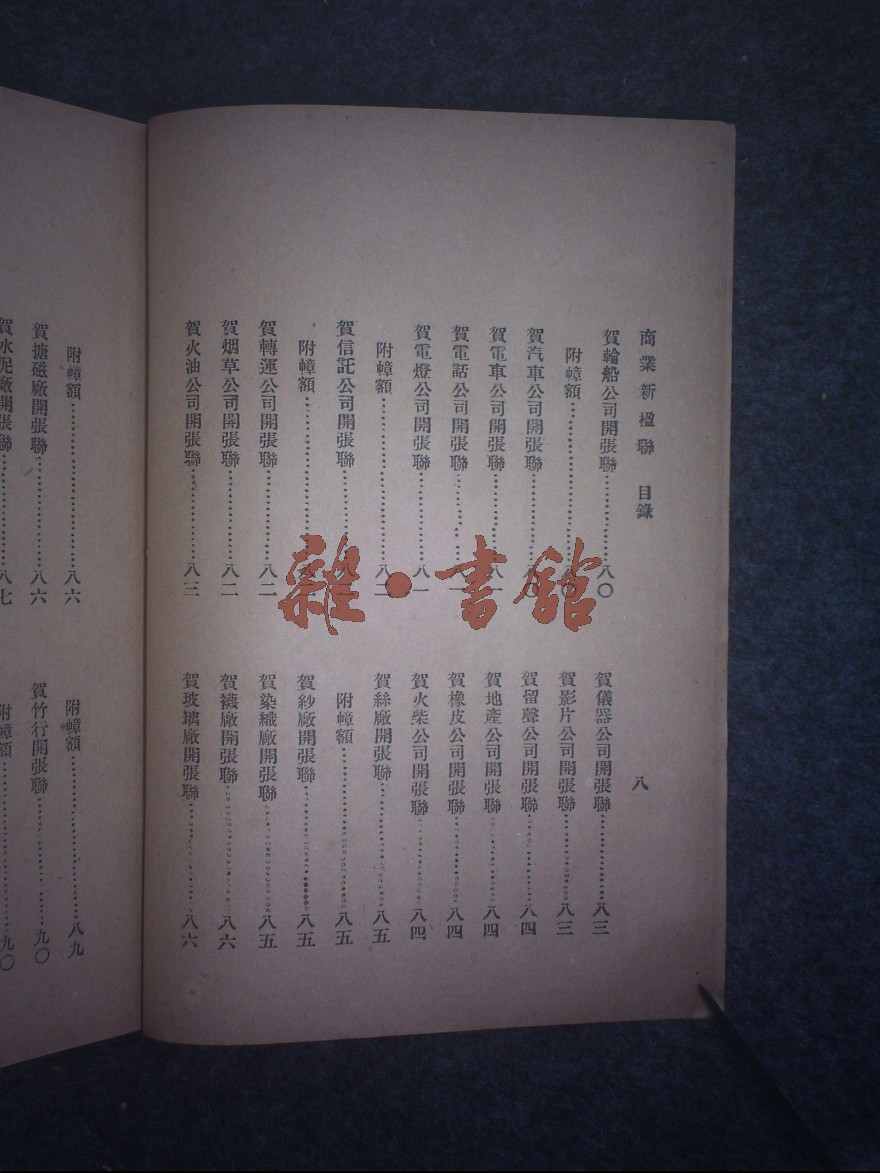 商業新楹聯 目錄 八
賀輪船公司開張聯……………八〇
附幛額……………八〇
賀汽車公司開張聯……………八〇
賀電車公司開張聯……………一
賀電話公司開張聯……………一
賀電燈公司開張聯……………八一
附幛額……………八二
賀信託公司開張聯……………
附幛額……………
賀轉運公司開張聯……………八二
賀烟草公司開張聯……………八二
賀火油公司開張聯……………八三
賀儀器公司開張聯……………八三
賀影片公司開張聯……………八三
賀留聲公司開張聯……………八四
賀地產公司開張聯……………八四
賀橡皮公司開張聯……………八四
賀火柴公司開張聯……………八四
賀絲廠開張聯……………八五
附幛額……………八五
賀紗廠開張聯……………八五
賀染織廠開張聯……………八五
賀襪廠開張聯……………八六
賀玻璃廠開張聯……………八六
附幛額……………八六
賀搪磁廠開張聯……………八六
賀水泥廠開張聯……………八七
附幛額……………八九
賀竹行開張聯……………九〇
附幛額……………九〇
雜·書館